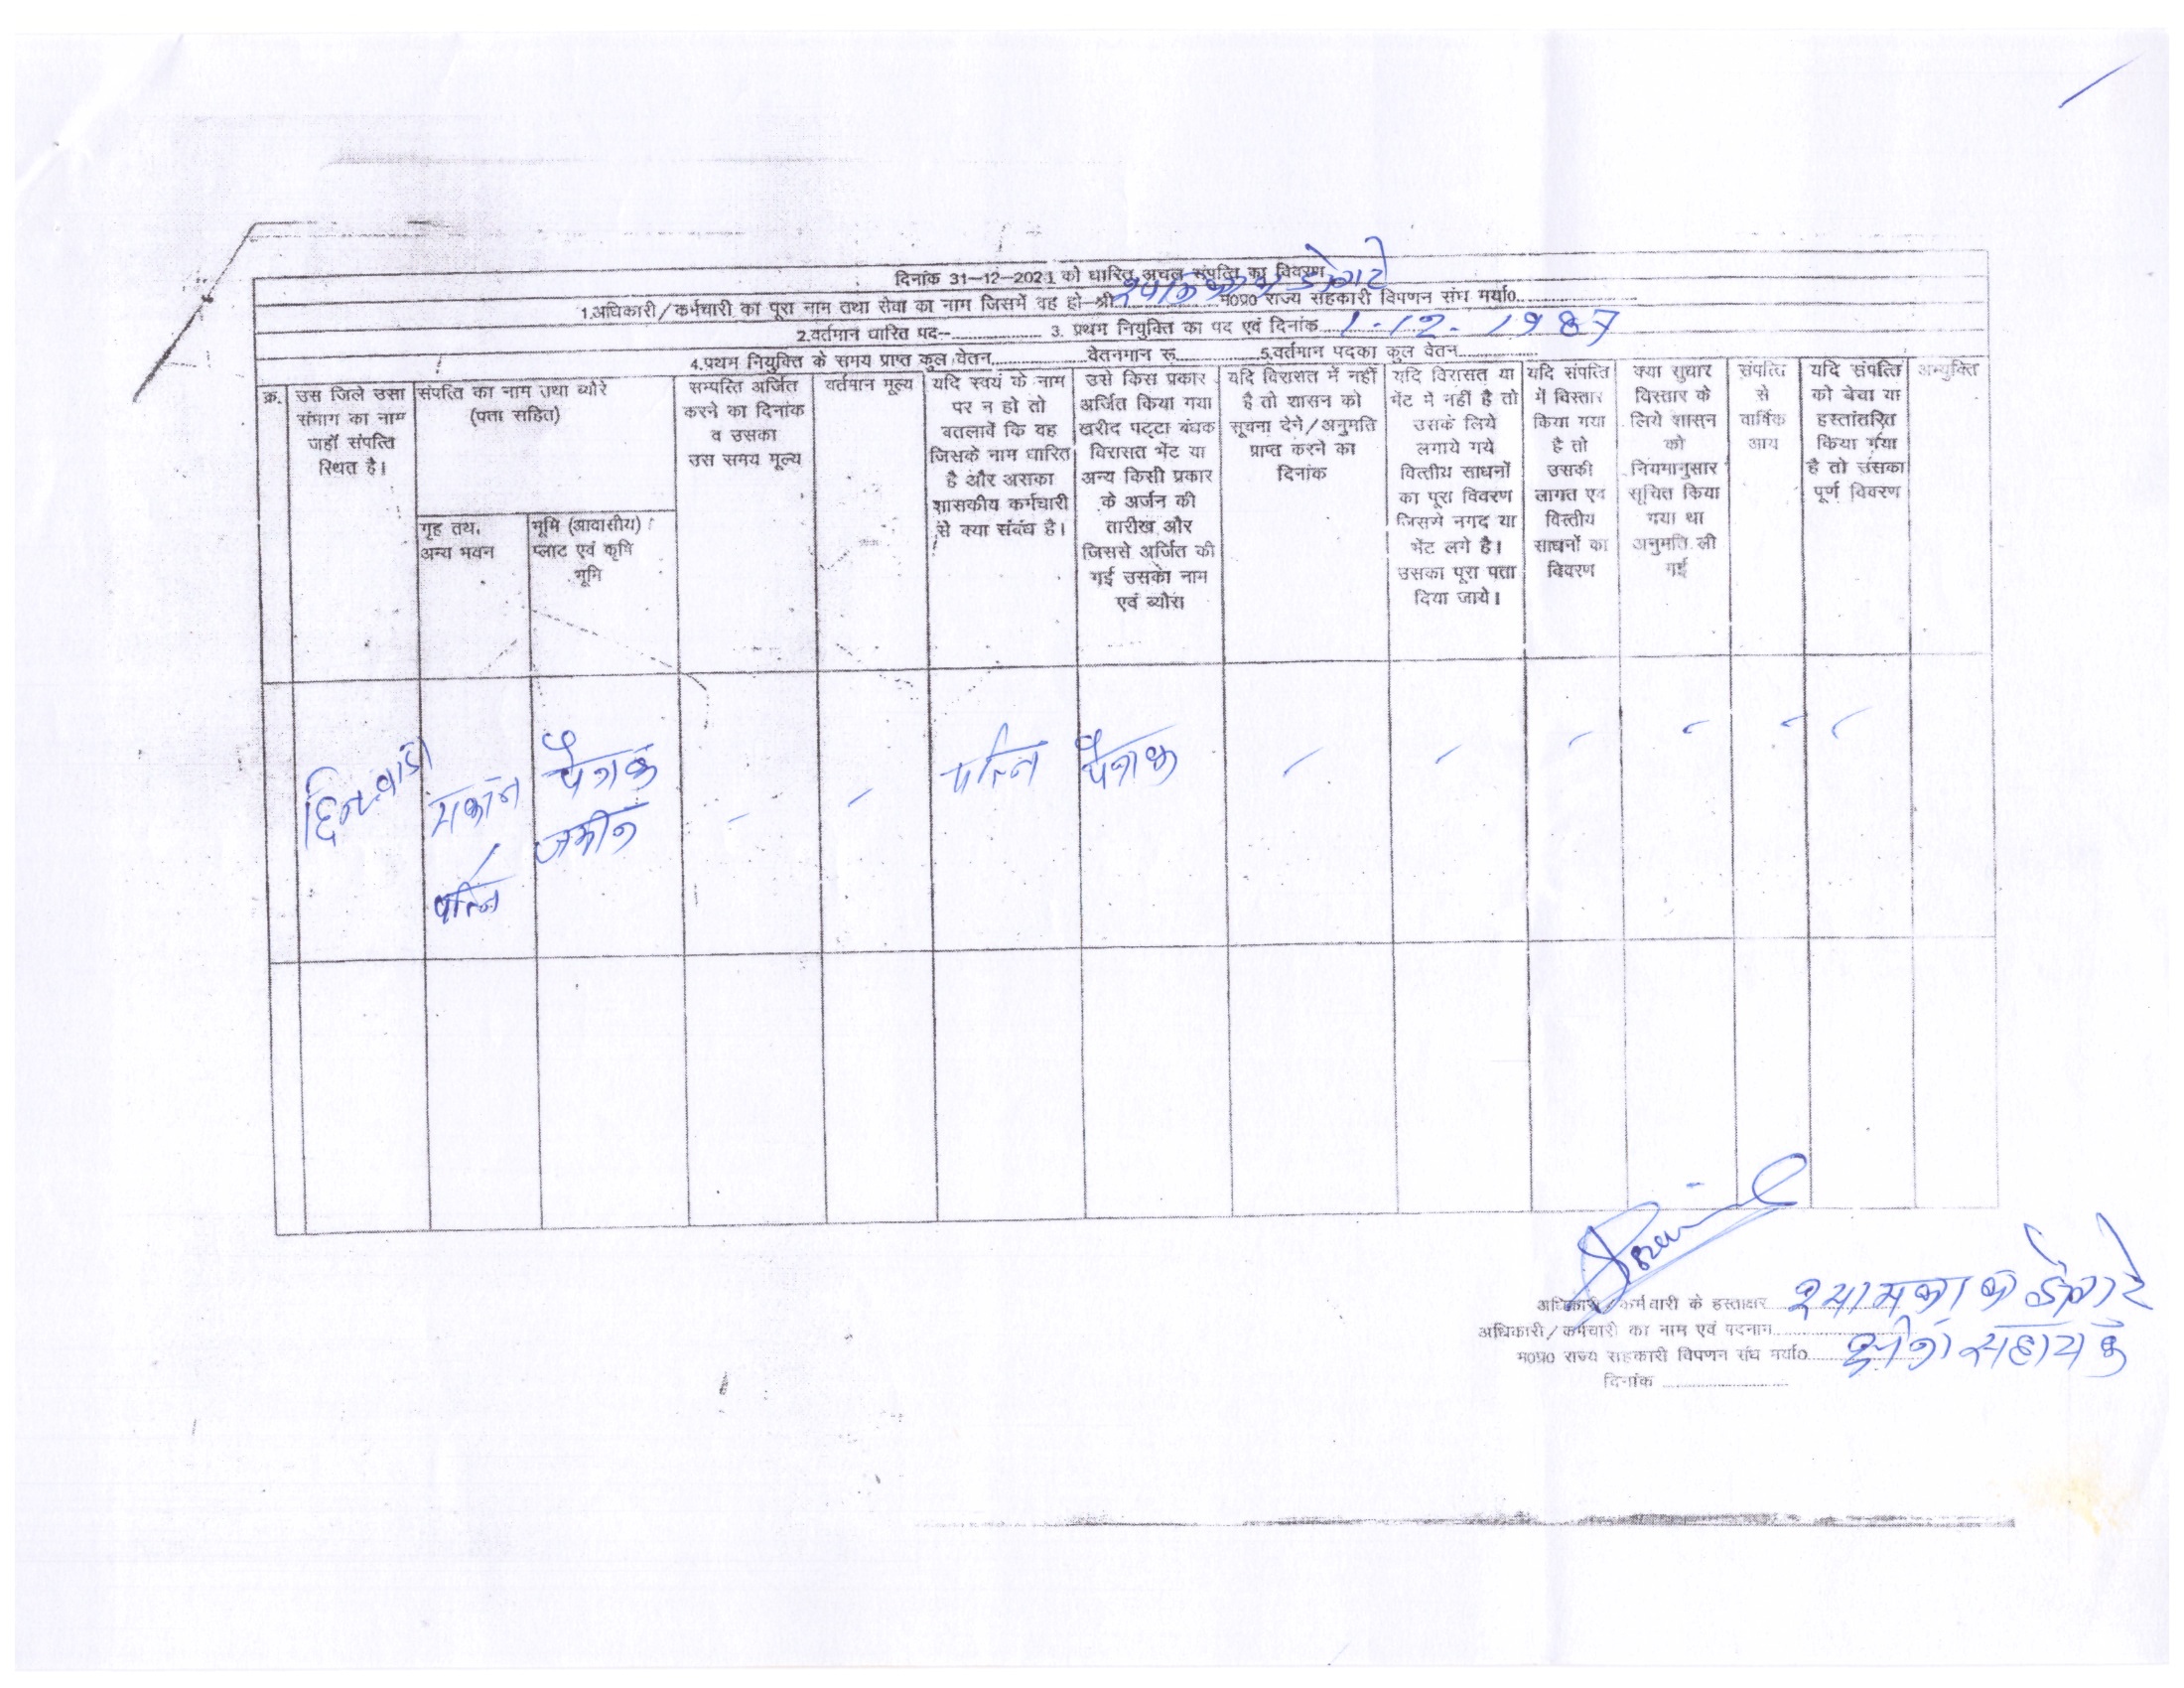 दिनांक 31-12-2021 को धारित अचल संपत्ति का विवरण
1.अधिकारी/कर्मचारी का पूरा नाम तथा सेवा का नाम जिसमें वह हो-श्री............ म0प्र0 राज्य सहकारी विपणन संघ मर्या0............
2.वर्तमान धारित पद--............ 3. प्रथम नियुक्ति का पद एवं दिनांक 1-12-1987
4.प्रथम नियुक्ति के समय प्राप्त कुल वेतन............वेतनमान रू............5.वर्तमान पदका कुल वेतन............
क्र.
उस जिले उसा
संभाग का नाम
जहाँ संपत्ति
स्थित है।
संपत्ति का नाम तथा ब्यौरे
(पता सहित)
गृह तथ.
अन्य भवन
भूमि (आवासीय)
प्लाट एवं कृषि
भूमि
सम्पत्ति अर्जित
करने का दिनांक
व उसका
उस समय मूल्य
वर्तमान मूल्य
यदि स्वयं के नाम
पर न हो तो
बतलावें कि वह
जिसके नाम धारित
है और असका
शासकीय कर्मचारी
से क्या संबंध है।
उसे किस प्रकार
अर्जित किया गया
खरीद पट्टा बंधक
विरासत भेंट या
अन्य किसी प्रकार
के अर्जन की
तारीख और
जिससे अर्जित की
गई उसका नाम
एवं ब्यौरा
यदि विरासत में नहीं
है तो शासन को
सूचना देने/अनुमति
प्राप्त करने का
दिनांक
यदि विरासत या
भेंट में नहीं है तो
उसके लिये
लगाये गये
वित्तीय साधनों
का पूरा विवरण
जिसमे नगद या
भेंट लगे है।
उसका पूरा पता
दिया जाये।
यदि संपत्ति
में विस्तार
किया गया
है तो
उसकी
लागत एवं
वित्तीय
साधनों का
विवरण
क्या सुधार
विस्तार के
लिये शासन
को
नियमानुसार
सूचित किया
गया था
अनुमति ली
गई
संपत्ति
से
वार्षिक
आय
यदि संपत्ति
को बेचा या
हस्तांतरित
किया गया
है तो उसका
पूर्ण विवरण
अभ्युक्ति
मकान
/
पत्नि
पैत्रक
जमीन
-
-
पत्नि
पैत्रक
-
-
-
-
-
-
अधिकारी/कर्मचारी के हस्ताक्षर
अधिकारी/कर्मचारी का नाम एवं पदनाम............
म0प्र0 राज्य सहकारी विपणन संघ मर्या0............ सहायक
दिनांक ............